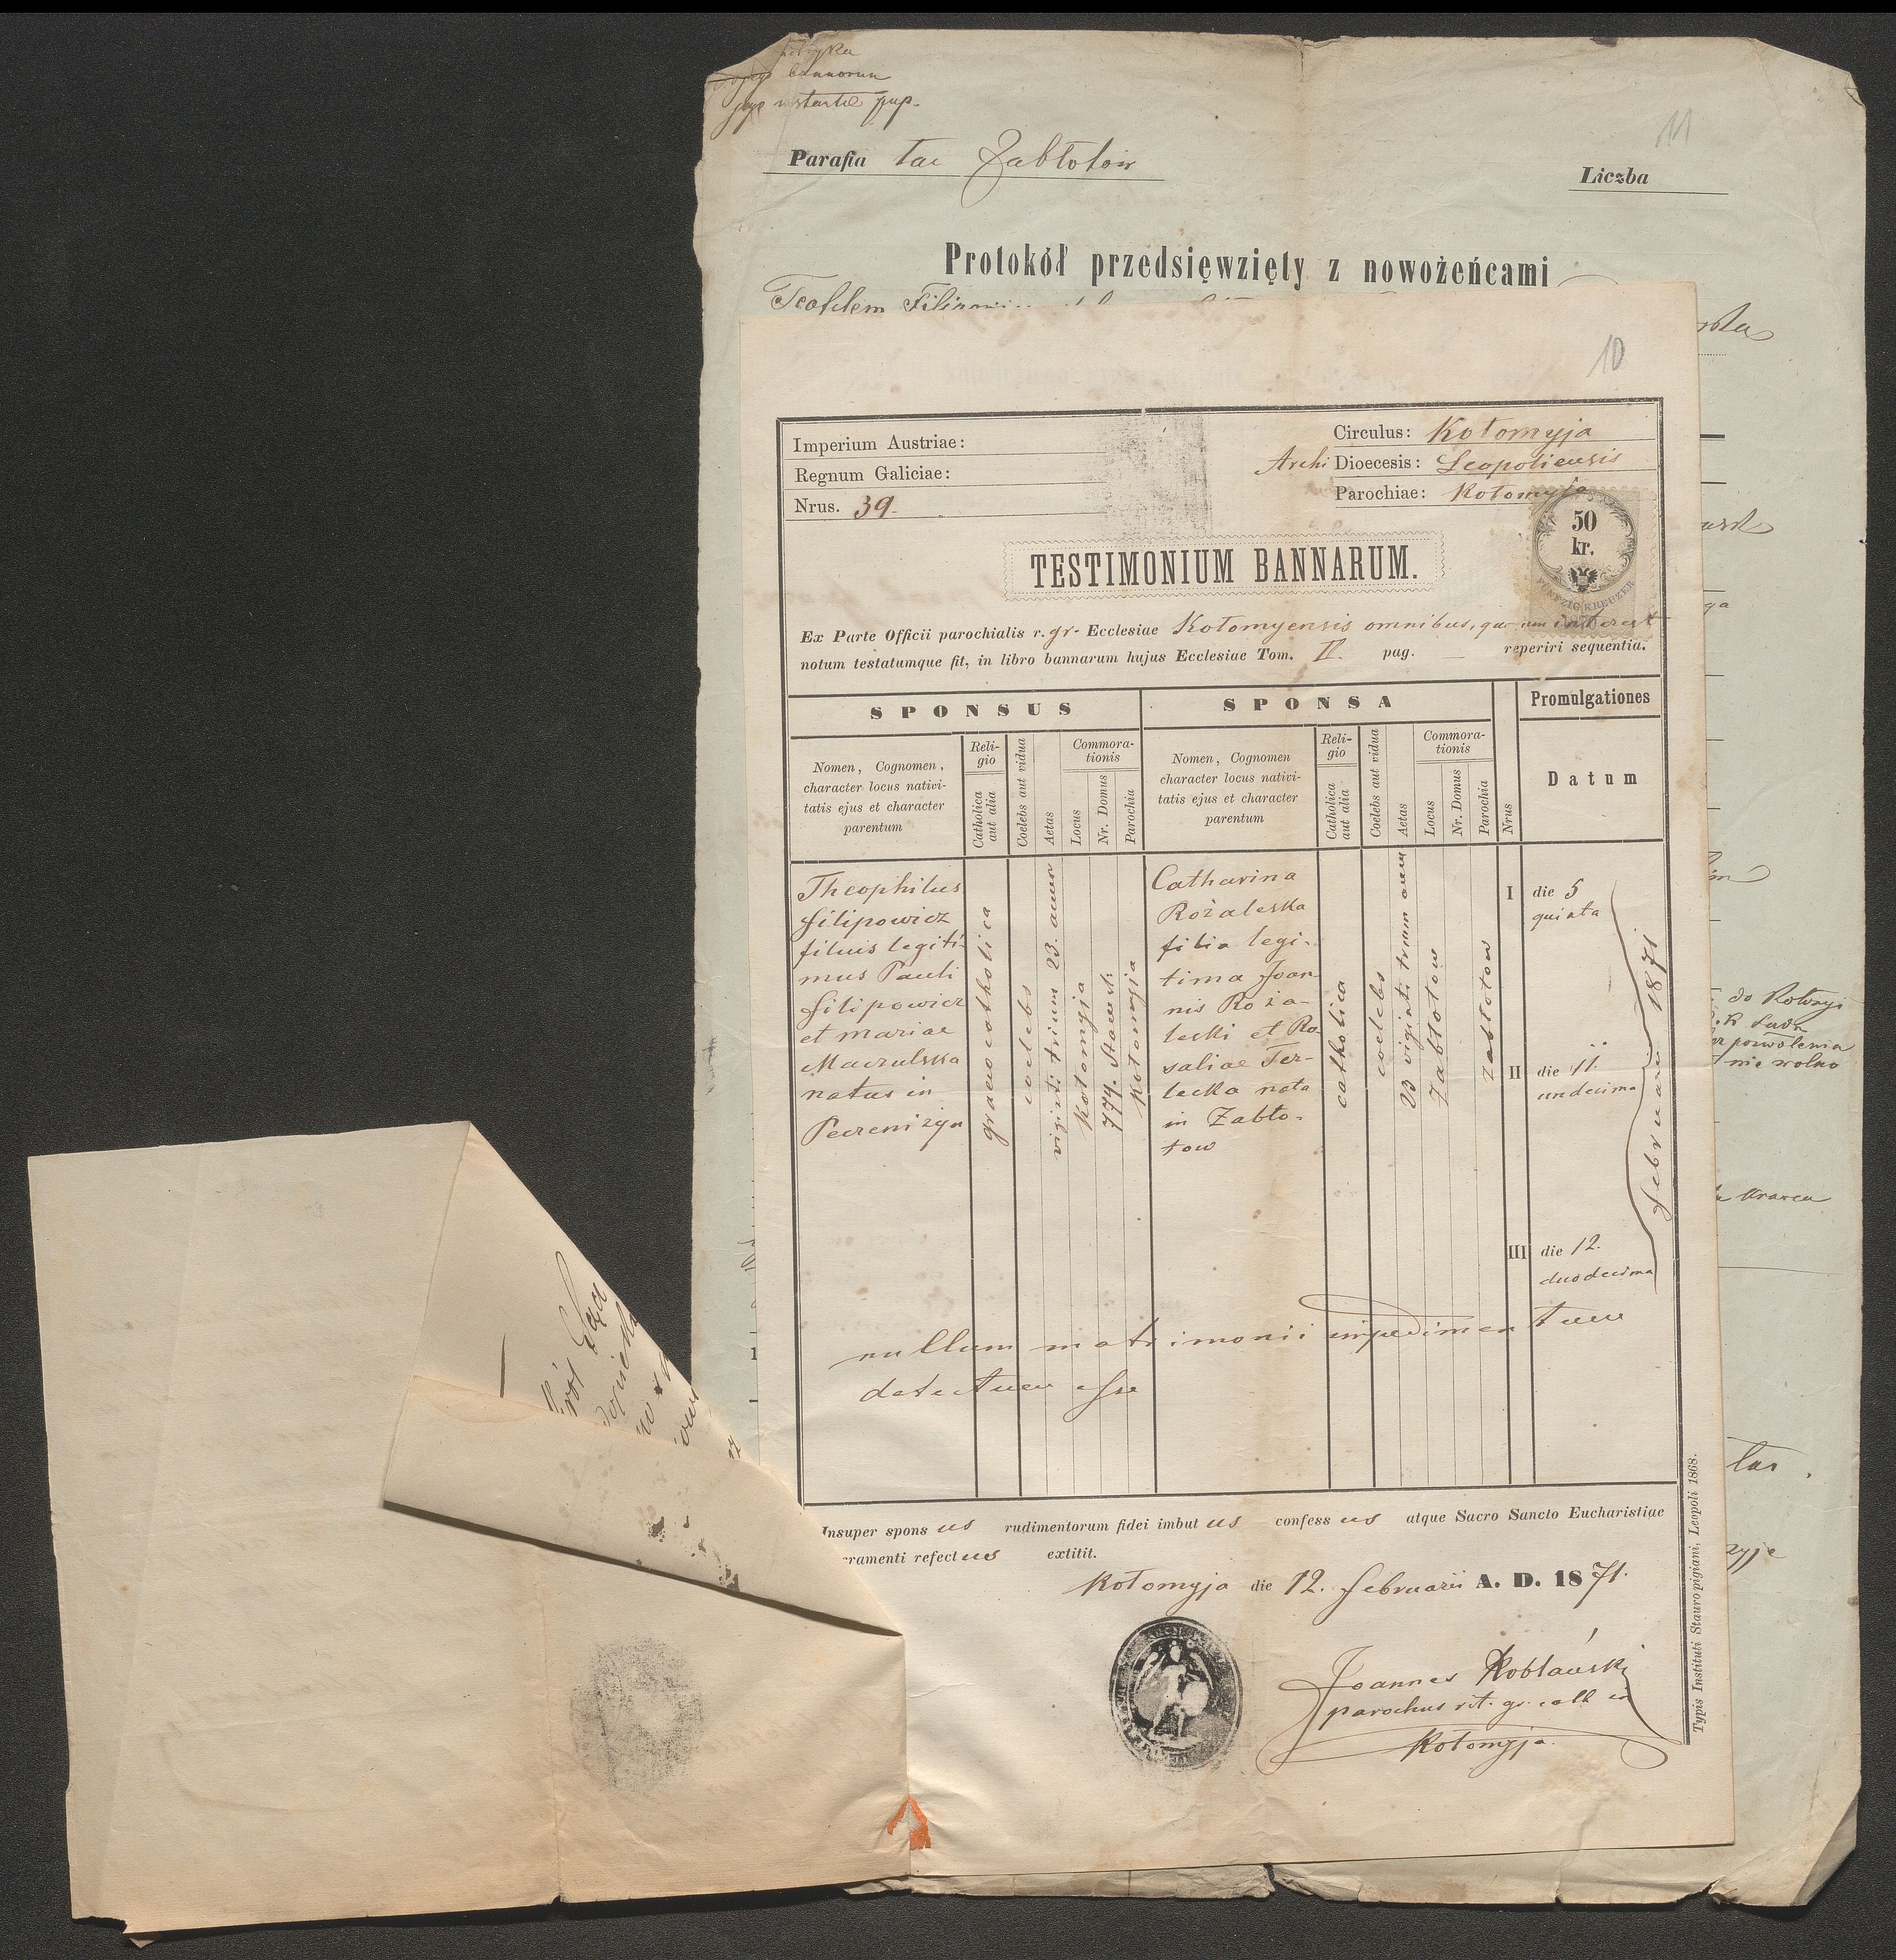 bannorum
Parafia łac Zabłotów
Liczba
11
Protokół przedsięwzięty z nowożeńcami
Teofilem
10
Imperium Austriae:
Regnum Galiciae:
Nrus. 39
Circulus: Kołomyja
Archi Dioecesis: Leopoliensis
Parochiae: Kołomyja
50
kr.
FÜNFZIG KREUZER
TESTIMONIUM BANNARUM.
Ex Parte Officii parochialis r. gr. Ecclesiae Kołomyensis omnibus, quorum interest
notum testatumque fit, in libro bannarum hujus Ecclesiae Tom. II. pag. — reperiri sequentia.
SPONSUS
SPONSA
Promulgationes
Nomen, Cognomen,
character locus nativi-
tatis ejus et character
parentum
Reli-
gio
Catholica
aut alia
Coelebs aut vidua
Aetas
Commora-
tionis
Locus
Nr. Domus
Parochia
Nomen, Cognomen
character locus nativi-
tatis ejus et character
parentum
Reli-
gio
Catholica
aut alia
Coelebs aut vidua
Aetas
Commora-
tionis
Locus
Nr. Domus
Parochia
Nrus
Datum
Theophilus
Filipowicz
filius legiti-
mus Pauli
Filipowicz
et Mariae
Maczulska
natus in
Peczeniżyn
graeco catholica
coelebs
viginti trium 23. annor
Kołomyja
774.
Kołomyja
Catharina
Rożaleska
filia legi-
tima Joan
nis Roża-
leski et Ro-
saliae Ter-
lecka nata
in Zabło-
tow
catholica
coelebs
23 viginti trium annor
Zabłotow
Zabłotow
I die 5
quinta
II die 11.
undecima
III die 12.
duodecima
Februarii 1871
nullum matrimonii impedimentum
detectum esse
Insuper spons us rudimentorum fidei imbut us confess us atque Sacro Sancto Eucharistiae
ramenti refect us extitit.
Kołomyja die 12. Februarii A. D. 18 71.
Joannes Kobłański
parochus rit. gr. cath in
Kołomyja.
Typis Instituti Stauropigiani, Leopoli 1868.
do Kołomyi
pozwolenia
nie wolno